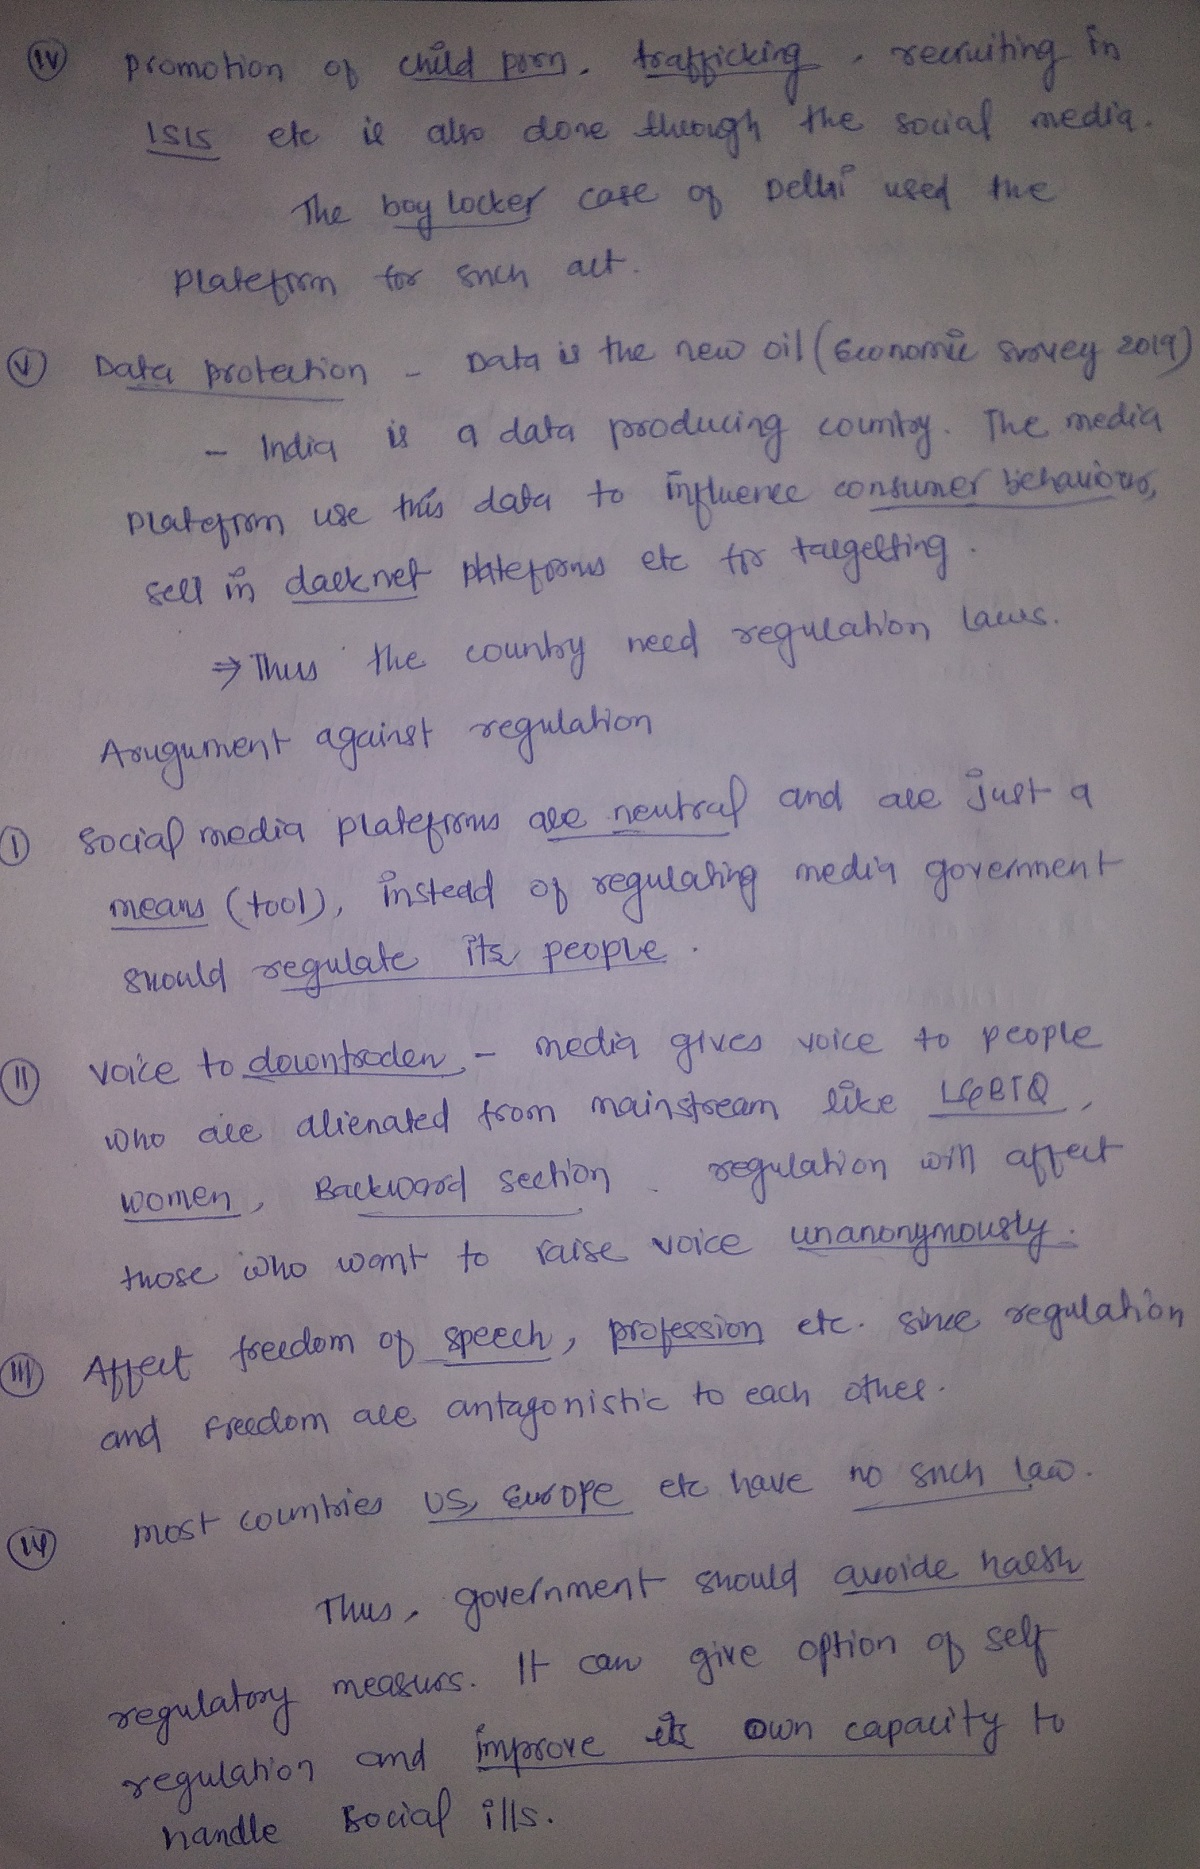 IV promotion of child porn, trafficking, recruiting in
ISIS etc is also done through the social media.
The boy locker case of Delhi used the
plateform for such act.
V Data protection - Data is the new oil (Economic survey 2019)
- India is a data producing country. The media
plateform use this data to influence consumer behaviour,
sell in darknet plateforms etc for targetting.
⇒ Thus the country need regulation laws.
Arugument against regulation
I Social media plateforms are neutral and are just a
means (tool), instead of regulating media government
should regulate its people.
II Voice to downtroden - media gives voice to people
who are alienated from mainstream like LGBTQ,
women, Backward section. regulation will affect
those who want to raise voice unanonymously.
III Affect freedom of speech, profession etc. since regulation
and freedom are antagonistic to each other.
IV most countries US, Europe etc have no such law.
Thus, government should avoide harsh
regulatory measurs. It can give option of self
regulation and improve its own capacity to
handle social ills.